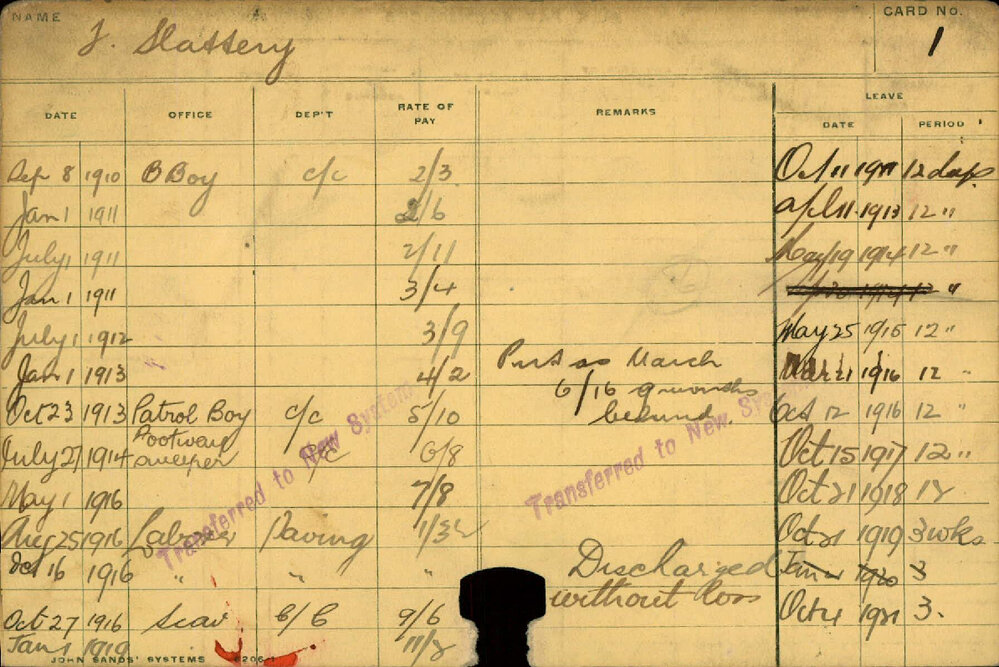 NAME
J. Slattery
CARD No.
1
DATE OFFICE DEP'T RATE OF PAY REMARKS LEAVE
DATE PERIOD
Sep 8 1910 B Boy c/c 2/3 Oct 11 1911 12 days
Jan 1 1911 2/6 April 11 1913 12 "
July 1 1911 2/11 May 19 1914 12 "
Jan 1 1911 3/4 "
July 1 1912 3/9 May 25 1915 12 "
Jan 1 1913 4/2 Mar 21 1916 12 "
March
6/16 9 months
behind
Oct 23 1913 Patrol Boy c/c 5/10 Oct 12 1916 12 "
July 27 1914 Footway sweeper 6/8 Oct 15 1917 12 "
May 1 1916 7/8 Oct 21 1918 12
Aug 25 1916 Labourer Paving Oct 21 1919 3 wks
Oct 16 1916 " " " 1920 3
Discharged
without loss
Oct 27 1916 Scav 9/6 Oct 4 1921 3.
Jan 1 1919
Transferred to New System
Transferred to New System
JOHN SANDS' SYSTEMS